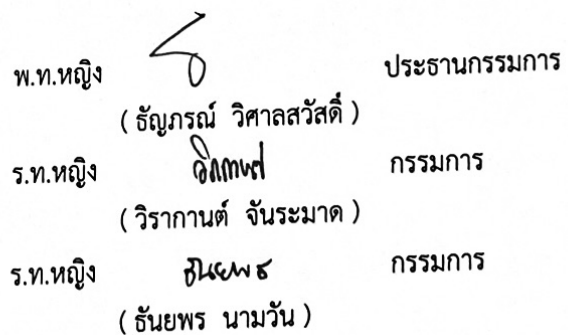 พ.ท.หญิง ประธานกรรมการ
( ธัญภรณ์ วิศาลสวัสดิ์ )
ร.ท.หญิง วิรากานต์ กรรมการ
( วิรากานต์ จันระมาด )
ร.ท.หญิง ธันยพร กรรมการ
( ธันยพร นามวัน )